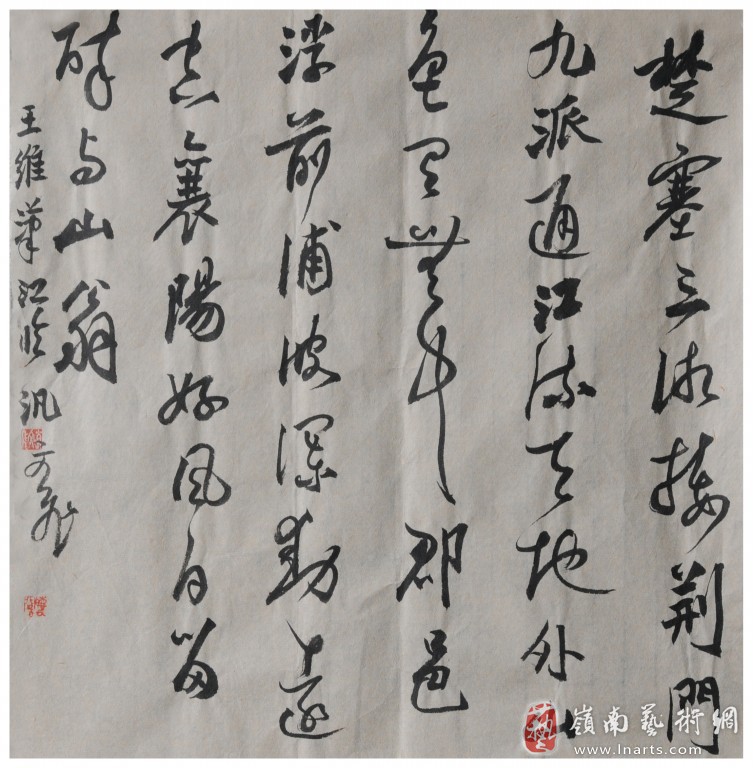 楚塞三湘接荆門
九派通江流天地外山
色有無中郡邑
浮前浦波瀾動遠
空襄陽好風日留
醉与山翁
王維漢江臨汎
藝 嶺南藝術網
www.lnarts.com